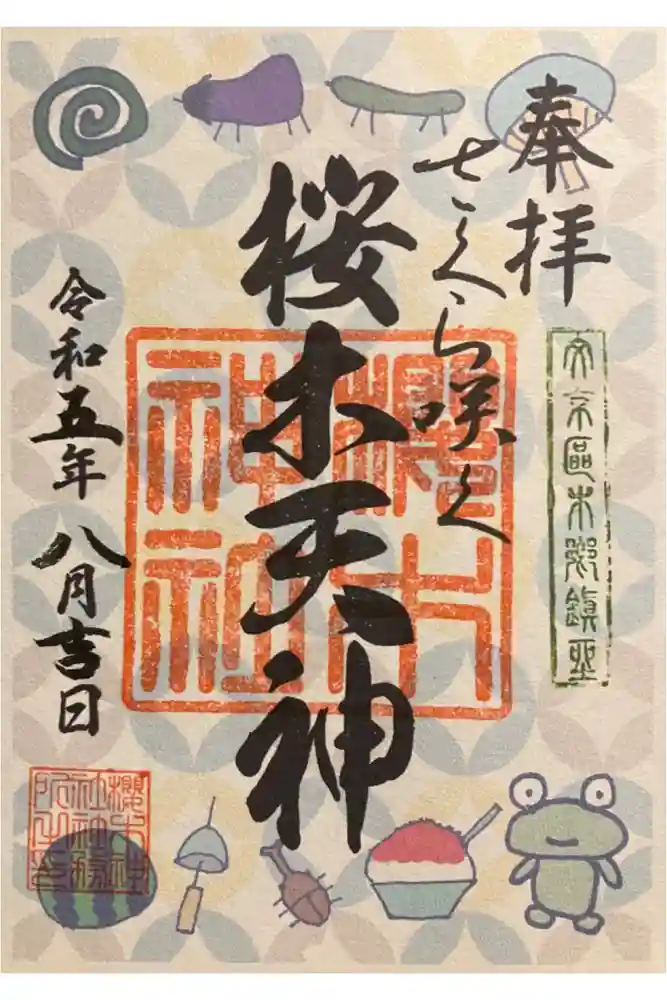 奉拝
文京區本郷鎮坐
さくら咲く
桜木天神
櫻木
神社
令和五年 八月吉日
櫻木神
社社務
所之印